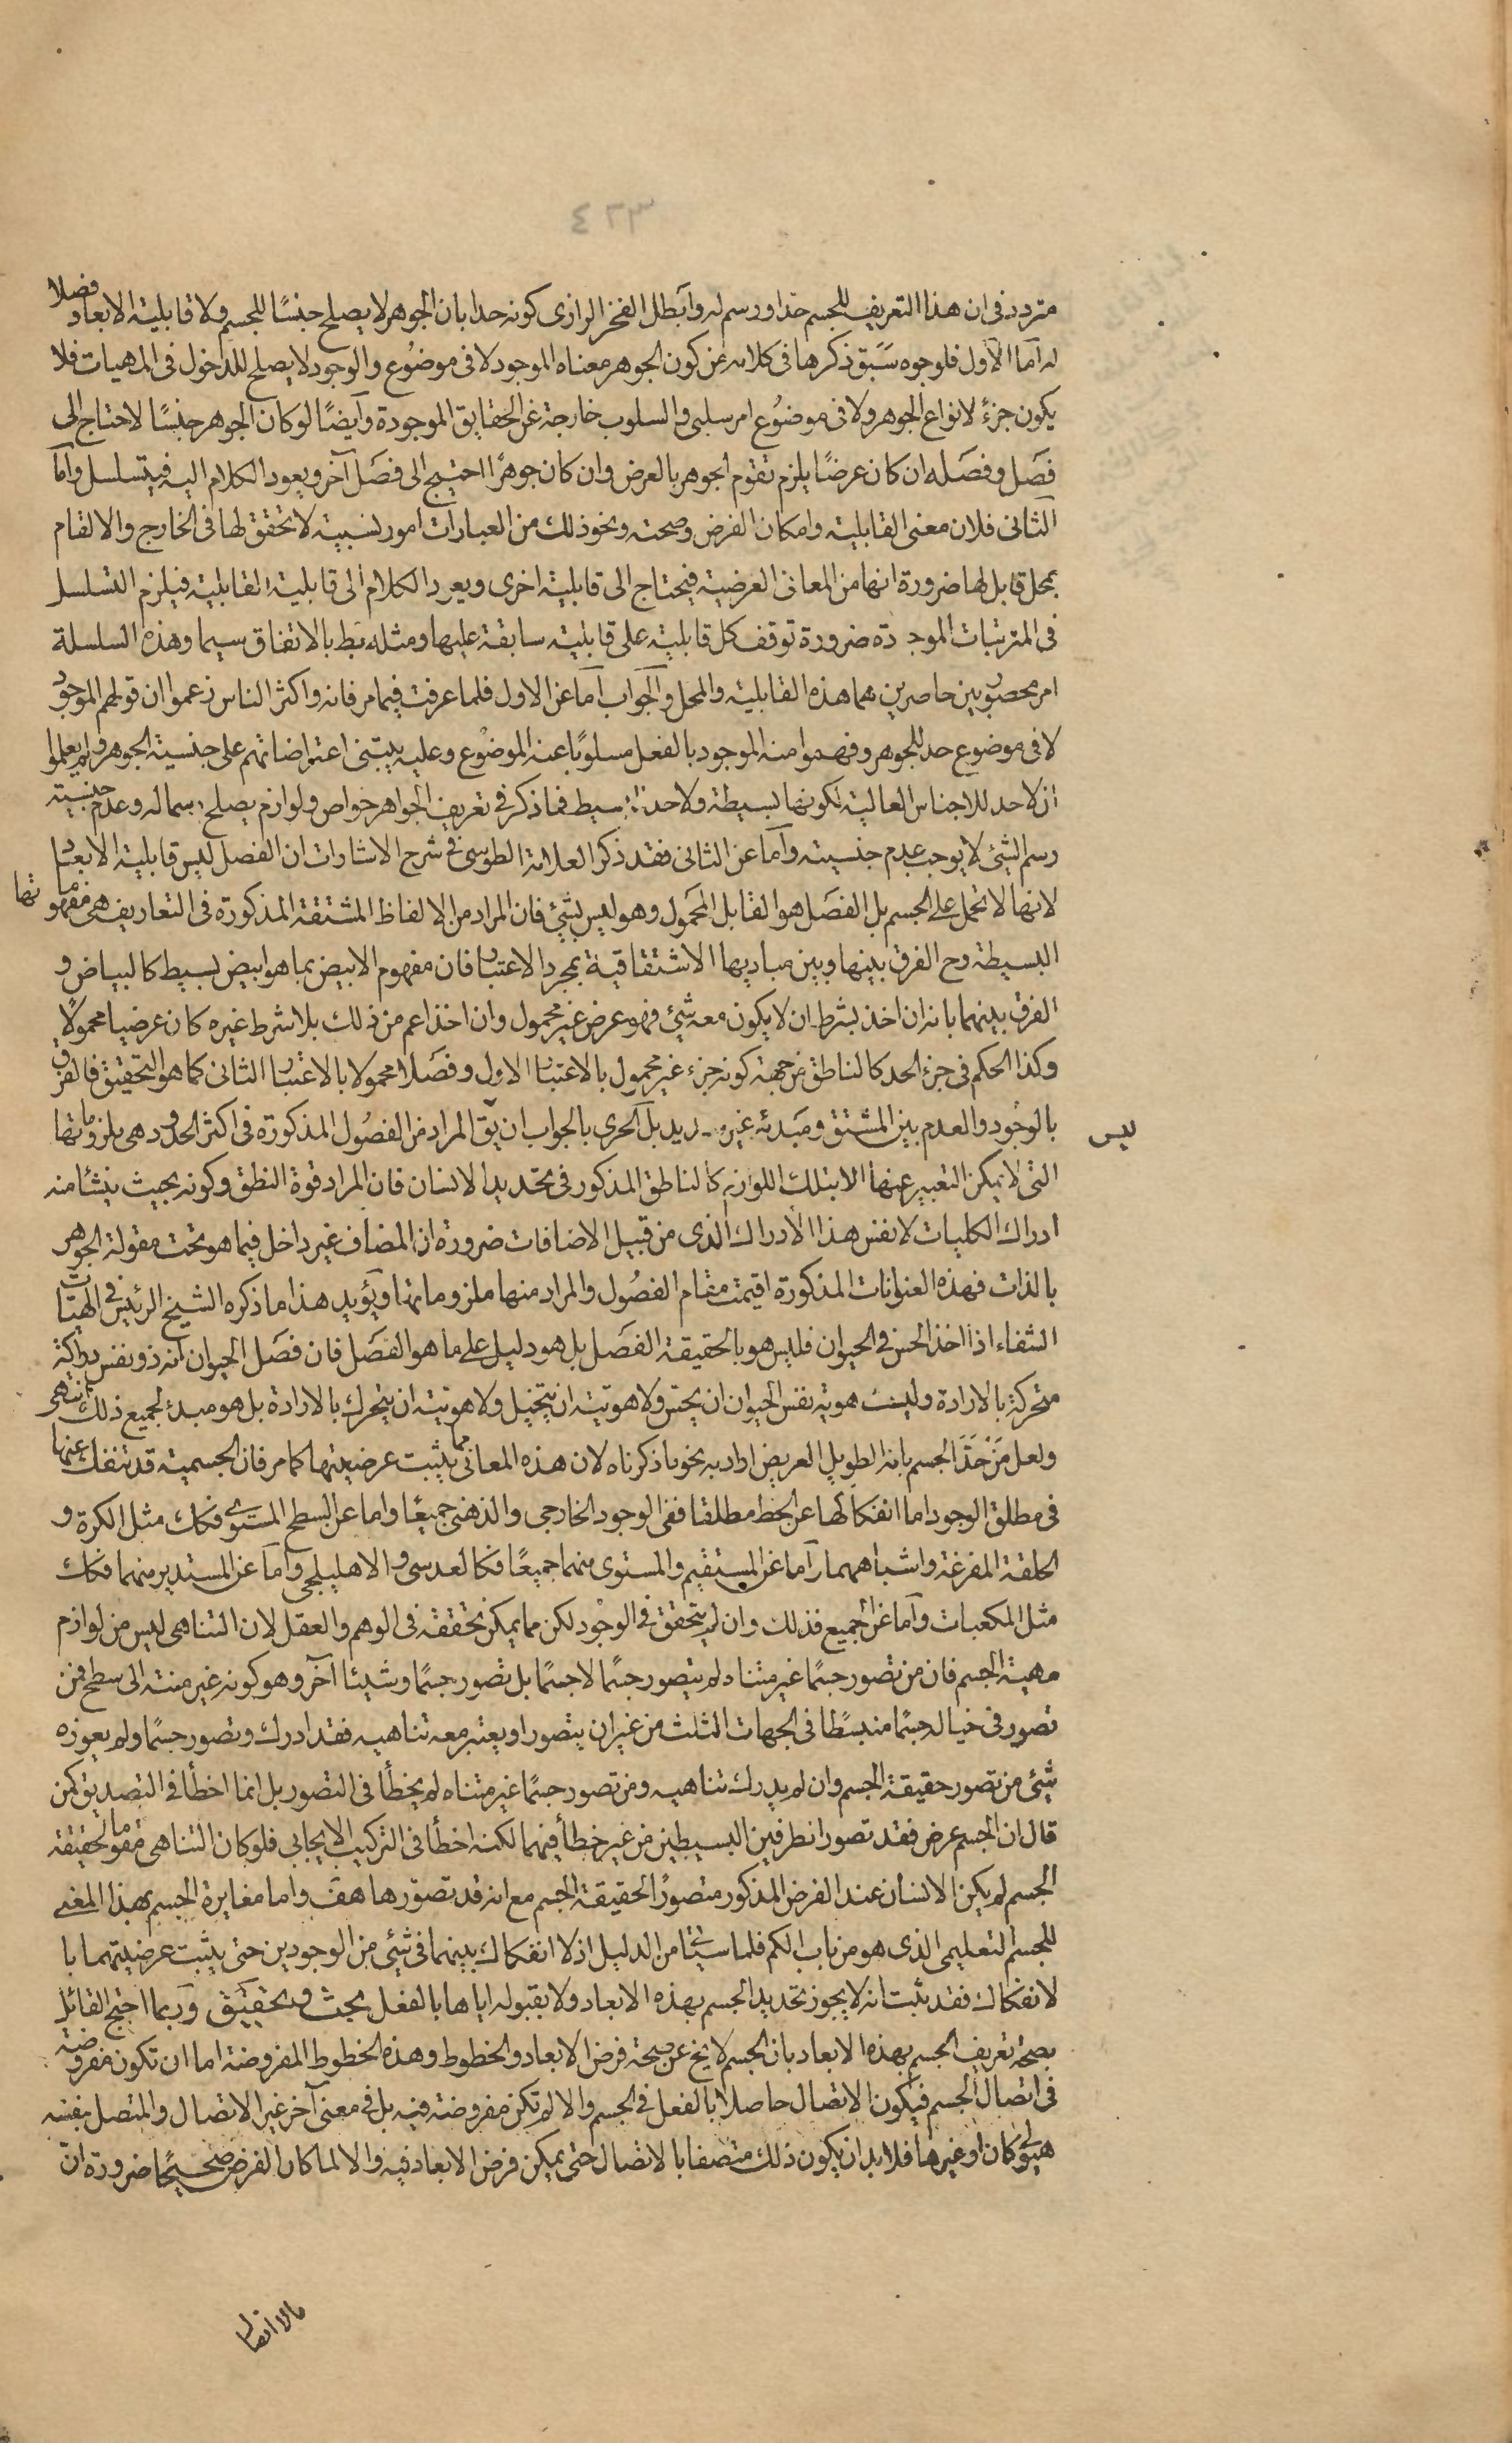 ٤٢٣
متردد في ان هذا التعريف للجسم حد او رسم له وابطل الفخر الرازى كونه حدا بان الجوهر لا يصلح جنسًا للجسم ولا قابلية الابعاد فصلا
له امّا الاول فلوجوه سَبَق ذكرها فى كلامه من كون الجوهر معناه الموجود لا فى موضوع والوجود لا يصلح للدخول فى المهيات فلا
يكون جزءً لانواع الجوهر ولا فى موضوع امر سلبى والسلوب خارجة عن الحقايق الموجودة وايضًا لو كان الجوهر جنسًا لاحتاج الى
فصَل وفصَله ان كان عرضًا يلزم تقوم الجوهر بالعرض وان كان جوهرًا احتيج الى فصَل آخر ويعود الكلام اليه فيتسلسل وامّا
الثانى فلان معنى القابلية وامكان الفرض وصحته ونحو ذلك من العبارات امور نسبية لا تحقق لها فى الخارج والا لقام
بمحل قابل لها ضرورة انها من المعانى العرضية فيحتاج الى قابلية اخرى ويعود الكلام الى قابلية القابلية فيلزم التسلسل
فى المترتبات الموجودة ضرورة توقف كل قابلية على قابلية سابقة عليها ومثله بط بالاتفاق سيما وهذه السلسلة
امر محصور بين حاصرين هما هذه القابلية والمحل والجواب امّا عن الاول فلما عرفت فيما مر فانه واكثر الناس زعموا ان قولهم الموجود
لا فى موضوع حد للجوهر وفهموا منه الموجود بالفعل مسلوبًا عنه الموضوع وعليه يبتنى اعتراضاتهم على جنسية الجوهر ولم يعلموا
ان لا حد للاجناس العالية لكونها بسيطة ولا حد للبسيط فما ذكر فى تعريف الجواهر خواص ولوازم يصلح رسما له وعدم جنسية
رسم الشئ لا يوجب عدم جنسيته وامّا عن الثانى فقد ذكر العلامة الطوسى فى شرح الاشارات ان الفصل ليس قابلية الابعاد
لانها لا تحمل على الجسم بل الفصَل هو القابل المحمول وهو ليس بشئ فان المراد من الالفاظ المشتقة المذكورة فى التعاريف هى مفهوماتها
البسيطة وح الفرق بينها وبين مباديها الاشتقاقية بمجرد الاعتبار فان مفهوم الابيض بما هو ابيض بسيط كالبياض و
الفرق بينهما بانه ان اخذ بشرط ان لا يكون معه شئ فهو عرض غير محمول وان اخذ اعم من ذلك بلا شرط غيره كان عرضيا محمولًا
وكذا الحكم فى جزء الحد كالناطق من جهة كونه جزء غير محمول بالاعتبار الاول وفصَلا محمولا بالاعتبار الثانى كما هو التحقيق فالفرق
بالوجود والعدم بين المشتق ومَبدئه غير سديد بل الحرى بالجواب ان يق المراد من الفصُول المذكورة فى اكثر الحدود هى ملزوماتها
ليس
التى لا يمكن التعبير عنها الا بتلك اللوازم كالناطق المذكور فى تحديد الانسان فان المراد قوة النطق وكونه بحيث ينشا منه
ادراك الكليات لا نفس هذا الادراك الذى من قبيل الاضافات ضرورة ان المضاف غير داخل فيما هو تحت مقولة الجوهر
بالذات فهذه العنوانات المذكورة اقيمت مقام الفصُول والمراد منها ملزوماتها ويؤيد هذا ما ذكره الشيخ الرئيس فى الهيات
الشفاء اذا اخذ الحس فى الحيوان فليس هو بالحقيقة الفصَل بل هو دليل على ما هو الفصَل فان فصَل الحيوان انه ذو نفس دراكة
متحركة بالارادة وليست هوية نفس الحيوان ان يحس ولا هويته ان يتخيل ولا هويته ان يتحرك بالارادة بل هو مبدئ لجميع ذلك انتهى
ولعل مَنْ حَدَّ الجسم بانه الطويل العريض اراد به نحو ما ذكرناه لان هذه المعانى مما يثبت عرضيتها كما مر فان الجسمية قد تنفك عنها
فى مطلق الوجود اما انفكاكها عن الخط مطلقا ففى الوجود الخارجى والذهنى جميعًا واما عن السطح المستوى فكك مثل الكرة و
الحلقة المفرغة واشباههما وامّا عن المستقيم والمستوى منهما جميعًا فكالعدسى والاهليلجى وامّا عن المستدير منهما فكك
مثل المكعبات وامّا عن الجميع فذلك وان لم يتحقق فى الوجود لكن مما يمكن تحققه فى الوهم والعقل لان التناهى ليس من لوازم
مهية الجسم فان من تصور جسمًا غير متناه لم يتصور جسمًا لا جسمًا بل تصور جسمًا وشيئا آخر وهو كونه غير منته الى سطح فمن
تصور فى خياله جسمًا منبسطًا فى الجهات الثلث من غير ان يتصور او يعتبر معه تناهيه فقد ادرك وتصور جسمًا ولم يعوزه
شئ من تصور حقيقة الجسم وان لم يدرك تناهيه ومن تصور جسمًا غير متناه لم يخطأ فى التصور بل انما اخطأ فى التصديق كمن
قال ان الجسم عرض فقد تصور الطرفين البسيطين من غير خطأ فيهما لكنه اخطأ فى التركيب الايجابى فلو كان التناهى مقوما لحقيقة
الجسم لم يكن الانسان عند الفرض المذكور متصورًا لحقيقة الجسم مع انه قد تصوّرها هف واما مغايرة الجسم بهذا المعنى
للجسم التعليمى الذى هو من باب الكم فلما سيأتى من الدليل اذ لا انفكاك بينهما فى شئ من الوجودين حتى يثبت عرضيتهما با
لانفكاك فقد ثبت انه لا يجوز تحديد الجسم بهذه الابعاد ولا بقبوله اياها بالفعل بحث وتحقيق وربما احتج القائل
بصحة تعريف الجسم بهذه الابعاد بان الجسم لا يخ عن صحة فرض الابعاد والخطوط وهذه الخطوط المفروضة اما ان تكون مفروضة
فى اتصال الجسم فيكون الاتصال حاصلا بالفعل فى الجسم والا لم تكن مفروضة فيه بل فى معنى آخر غير الاتصال والمتصل بنفسه
هيولى كان او غيرها فلا بد ان يكون ذلك متصفا بالاتصال حتى يمكن فرض الابعاد فيه والا لما كان الفرض صحيحًا ضرورة انّ
مالا اتصال